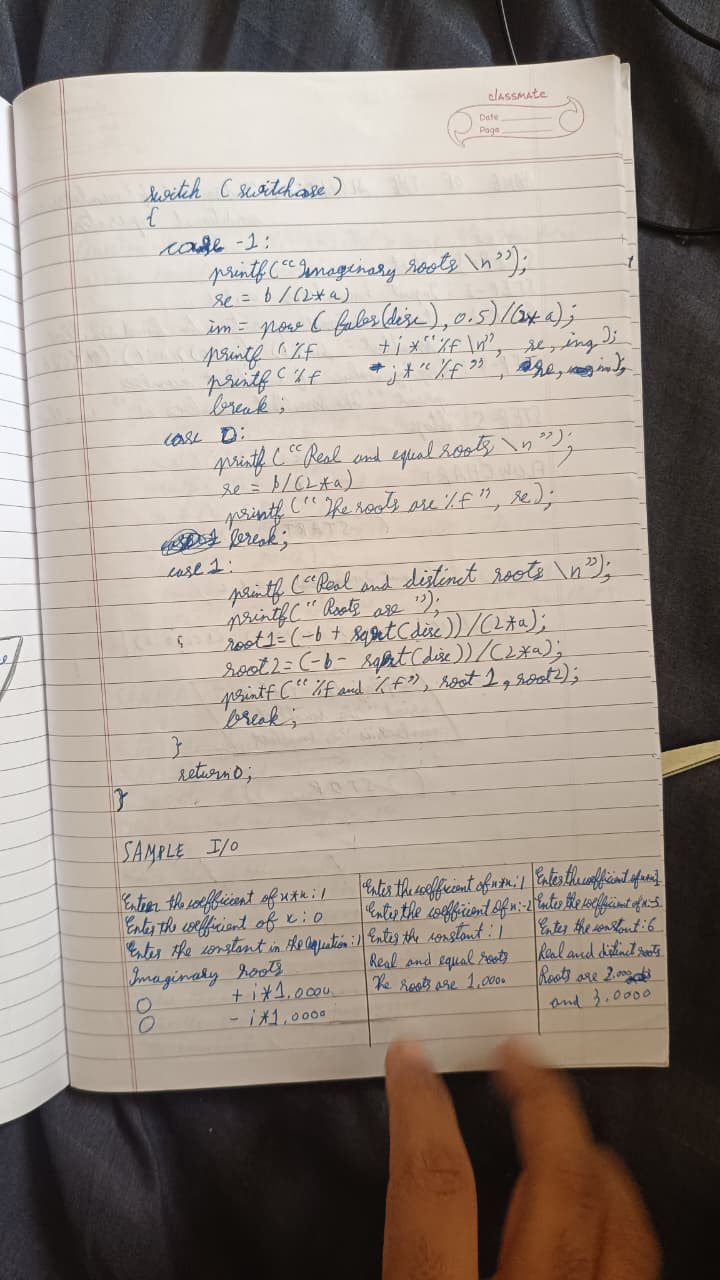 classmate
Date
Page
switch (switchcase)
{
case -1:
printf(“Imaginary roots \n”);
re = b/(2*a)
im = pow ( fabs(disc), 0.5)/(2*a);
printf (%f +i*“%f \n”, re, img);
printf (%f -i*“%f”, re, im);
break;
case 0:
printf(“Real and equal roots \n”);
re = b/(2*a)
printf (“The roots are %f”, re);
break;
case 1:
printf (“Real and distinct roots \n”);
printf(“Roots are”);
root1=(-b + sqrt(disc))/(2*a);
root2=(-b- sqrt(disc))/(2*a);
printf (“%f and %f”, root 1, root2);
break;
}
return 0;
}
SAMPLE I/O
Enter the coefficient of x*x:1
Enter the coefficient of x:0
Enter the constant in the equation:1
Imaginary roots
0 +i*1.0000
0 -i*1.0000
Enter the coefficient of x*x:1
Enter the coefficient of x:-2
Enter the constant:1
Real and equal roots
The roots are 1.0000
Enter the coefficient of x*x:1
Enter the coefficient of x:-5
Enter the constant:6
Real and distinct roots
Roots are 2.000
and 3.0000